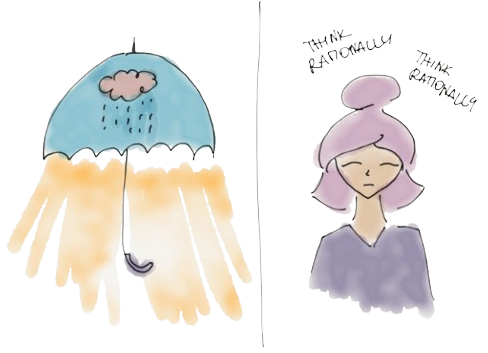 THINK
RATIONALLY
THINK
RATIONALLY